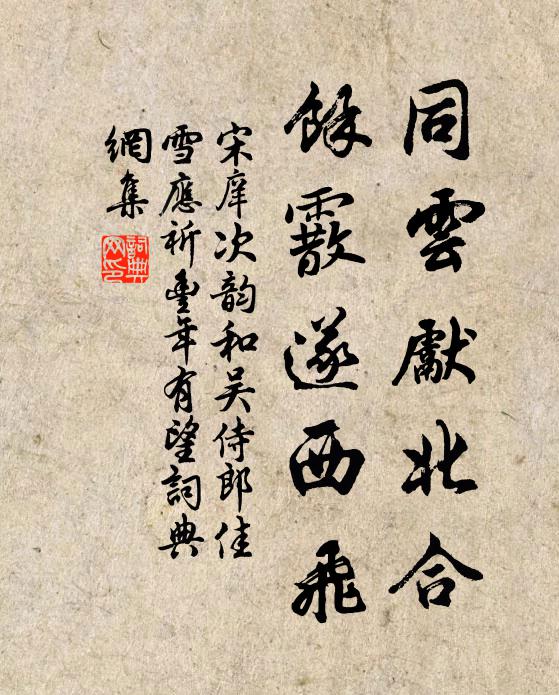 同雲獻北合
餘霰遂西飛
宋庠次韵和吴侍郎佳
雪應祈豐年有望詞典
網集
詞典
网印